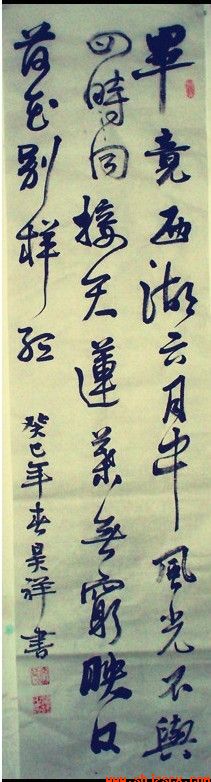 畢竟西湖六月中風光不與
四時同接天蓮葉無窮映日
荷花別樣紅
癸巳年春吴祥書